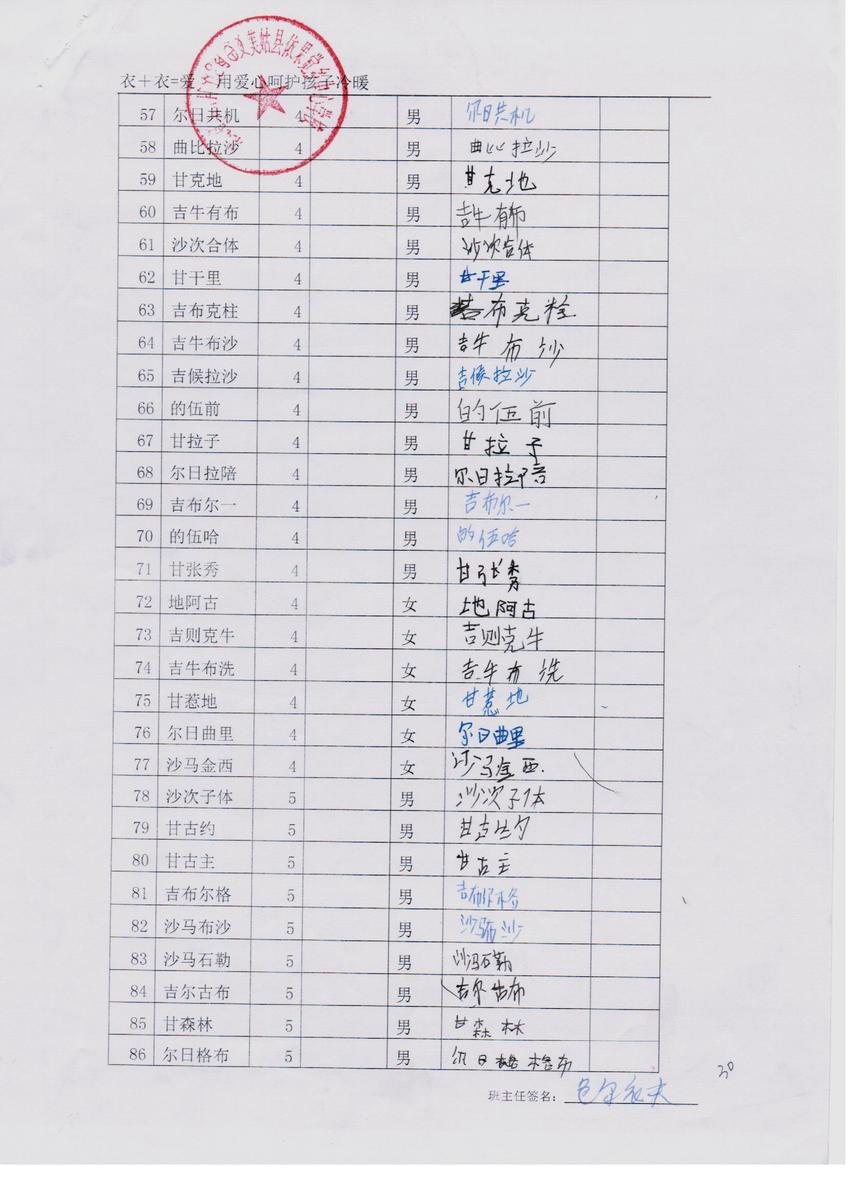 衣+衣=爱 用爱心呵护孩子冷暖
57 尔日共机 4 男 尔日共机
58 曲比拉沙 4 男 曲比拉沙
59 甘克地 4 男 甘克地
60 吉牛有布 4 男 吉牛有布
61 沙次合体 4 男 沙次合体
62 甘干里 4 男 甘干里
63 吉布克柱 4 男 布克栓
64 吉牛布沙 4 男 吉牛布沙
65 吉候拉沙 4 男 吉候拉沙
66 的伍前 4 男 的伍前
67 甘拉子 4 男 甘拉子
68 尔日拉陪 4 男 尔日拉陪
69 吉布尔一 4 男 吉布尔一
70 的伍哈 4 男 的伍哈
71 甘张秀 4 男 甘张秀
72 地阿古 4 女 地阿古
73 吉则克牛 4 女 吉则克牛
74 吉牛布洗 4 女 吉牛布洗
75 甘惹地 4 女 甘惹地
76 尔日曲里 4 女 尔日曲里
77 沙马金西 4 女 沙马金西.
78 沙次子体 5 男 沙次子体
79 甘古约 5 男 甘古约
80 甘古主 5 男 甘古主
81 吉布尔格 5 男 吉布尔格
82 沙马布沙 5 男 沙马布沙
83 沙马石勒 5 男 沙马石勒
84 吉尔古布 5 男 吉尔古布
85 甘森林 5 男 甘森林
86 尔日格布 5 男 尔日格格布
30
班主任签名: